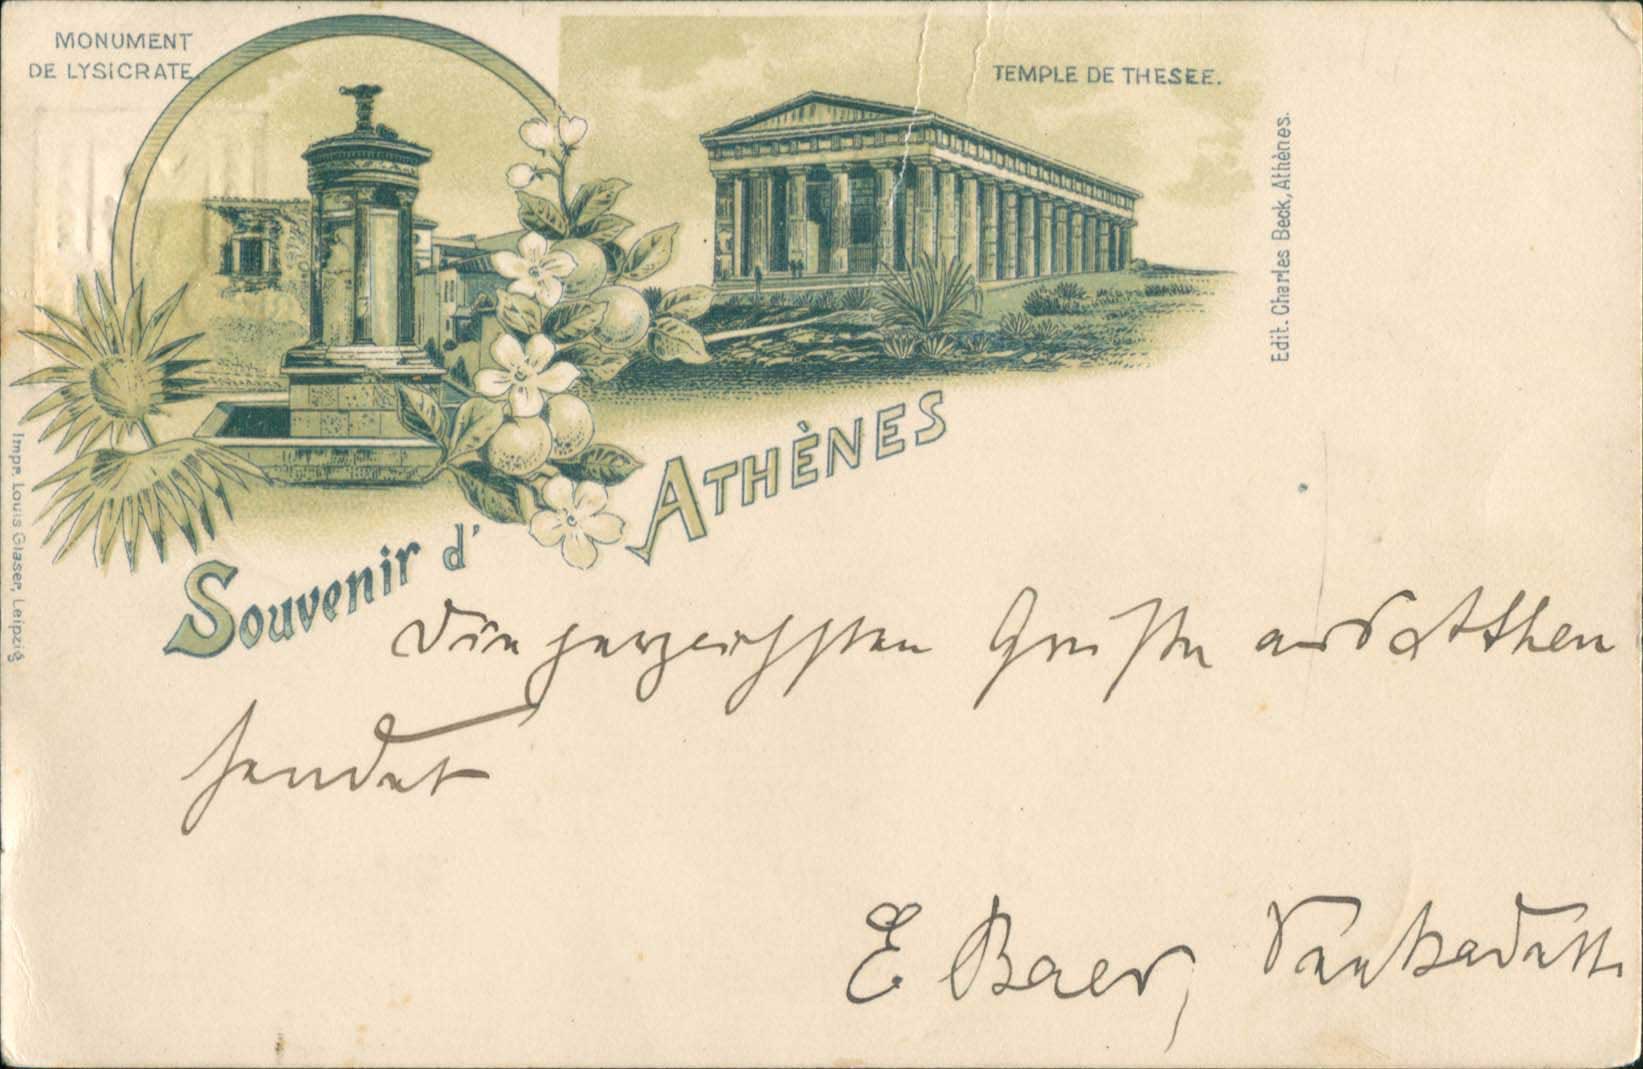 MONUMENT
DE LYSICRATE.
TEMPLE DE THESEE.
Edit. Charles Beck, Athènes.
Impr. Louis Glaser, Leipzig
Souvenir d'ATHÈNES
Die herzlichsten Grüße aus Athen
sendet
E Baer, Seekadett.